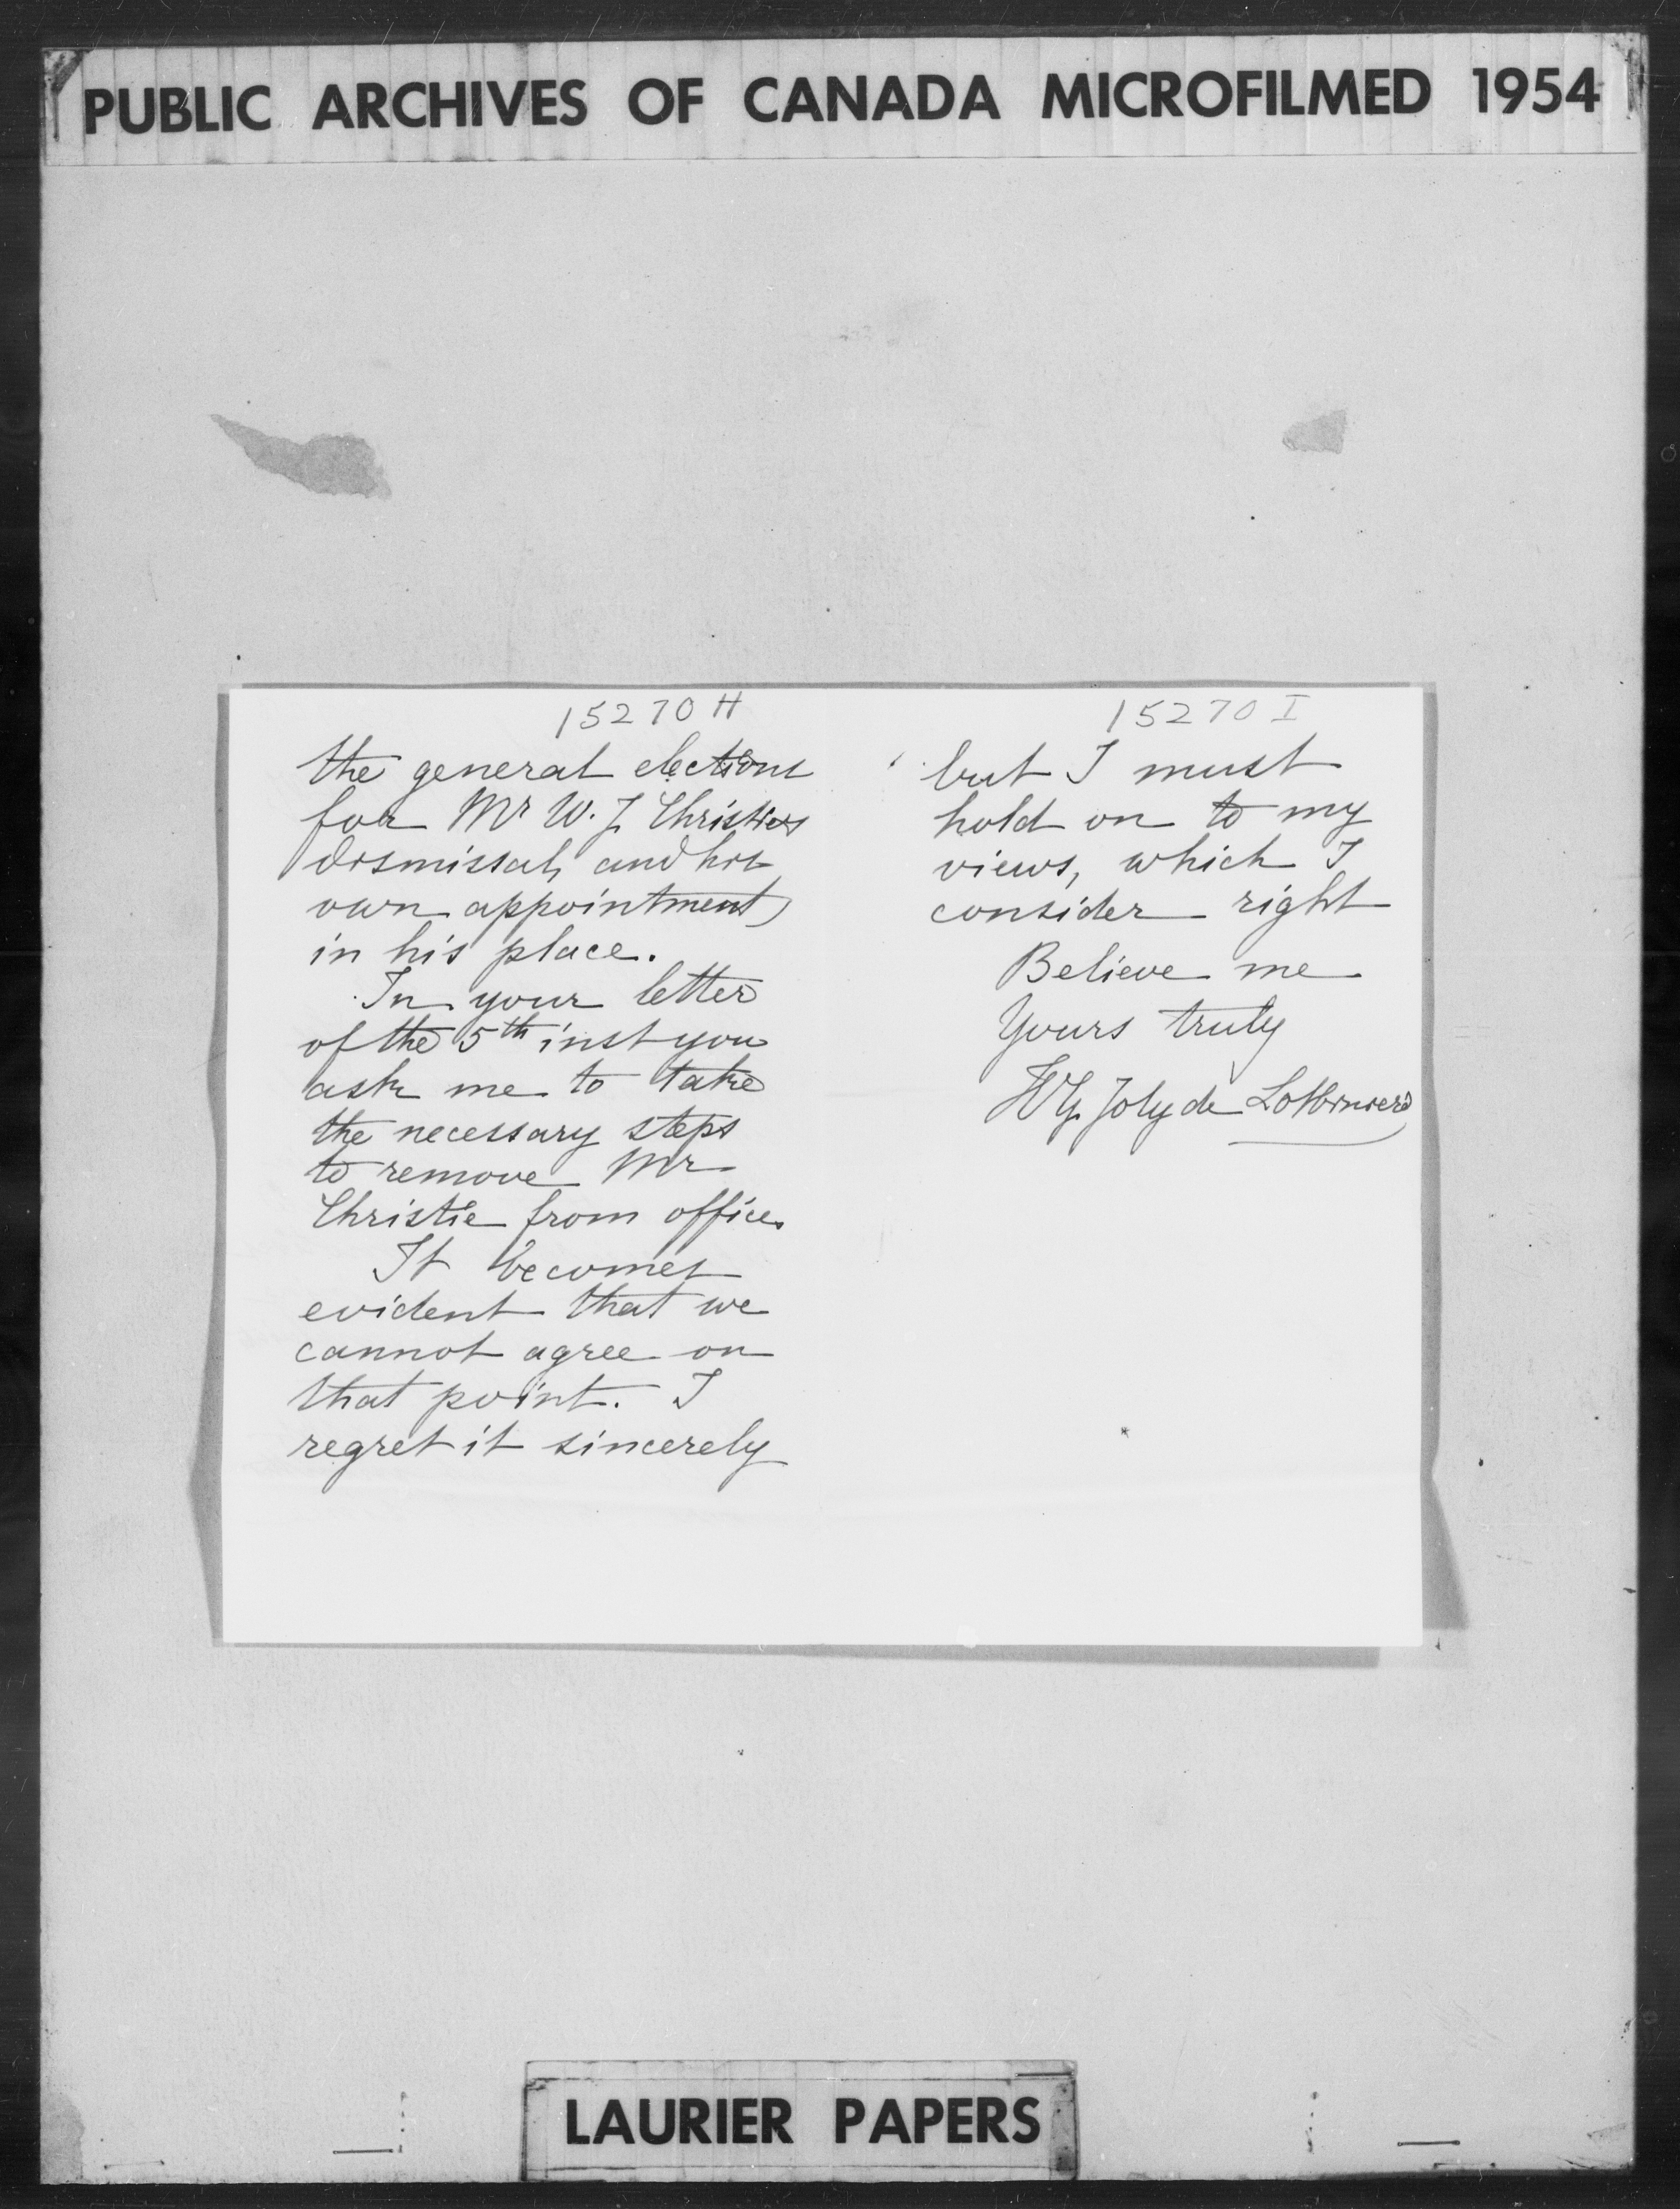 PUBLIC ARCHIVES OF CANADA MICROFILMED 1954
15270 H
the general elections
for Mr W. J. Christies
dismissal, and his
own appointment
in his place.
In your letter
of the 5th inst you
ask me to take
the necessary steps
to remove Mr
Christie from office.
It becomes
evident that we
cannot agree on
that point. I
regret it sincerely
15270 I
but I must
hold on to my
views, which I
consider right
Believe me
Yours truly
HG Joly de Lotbiniere
LAURIER PAPERS